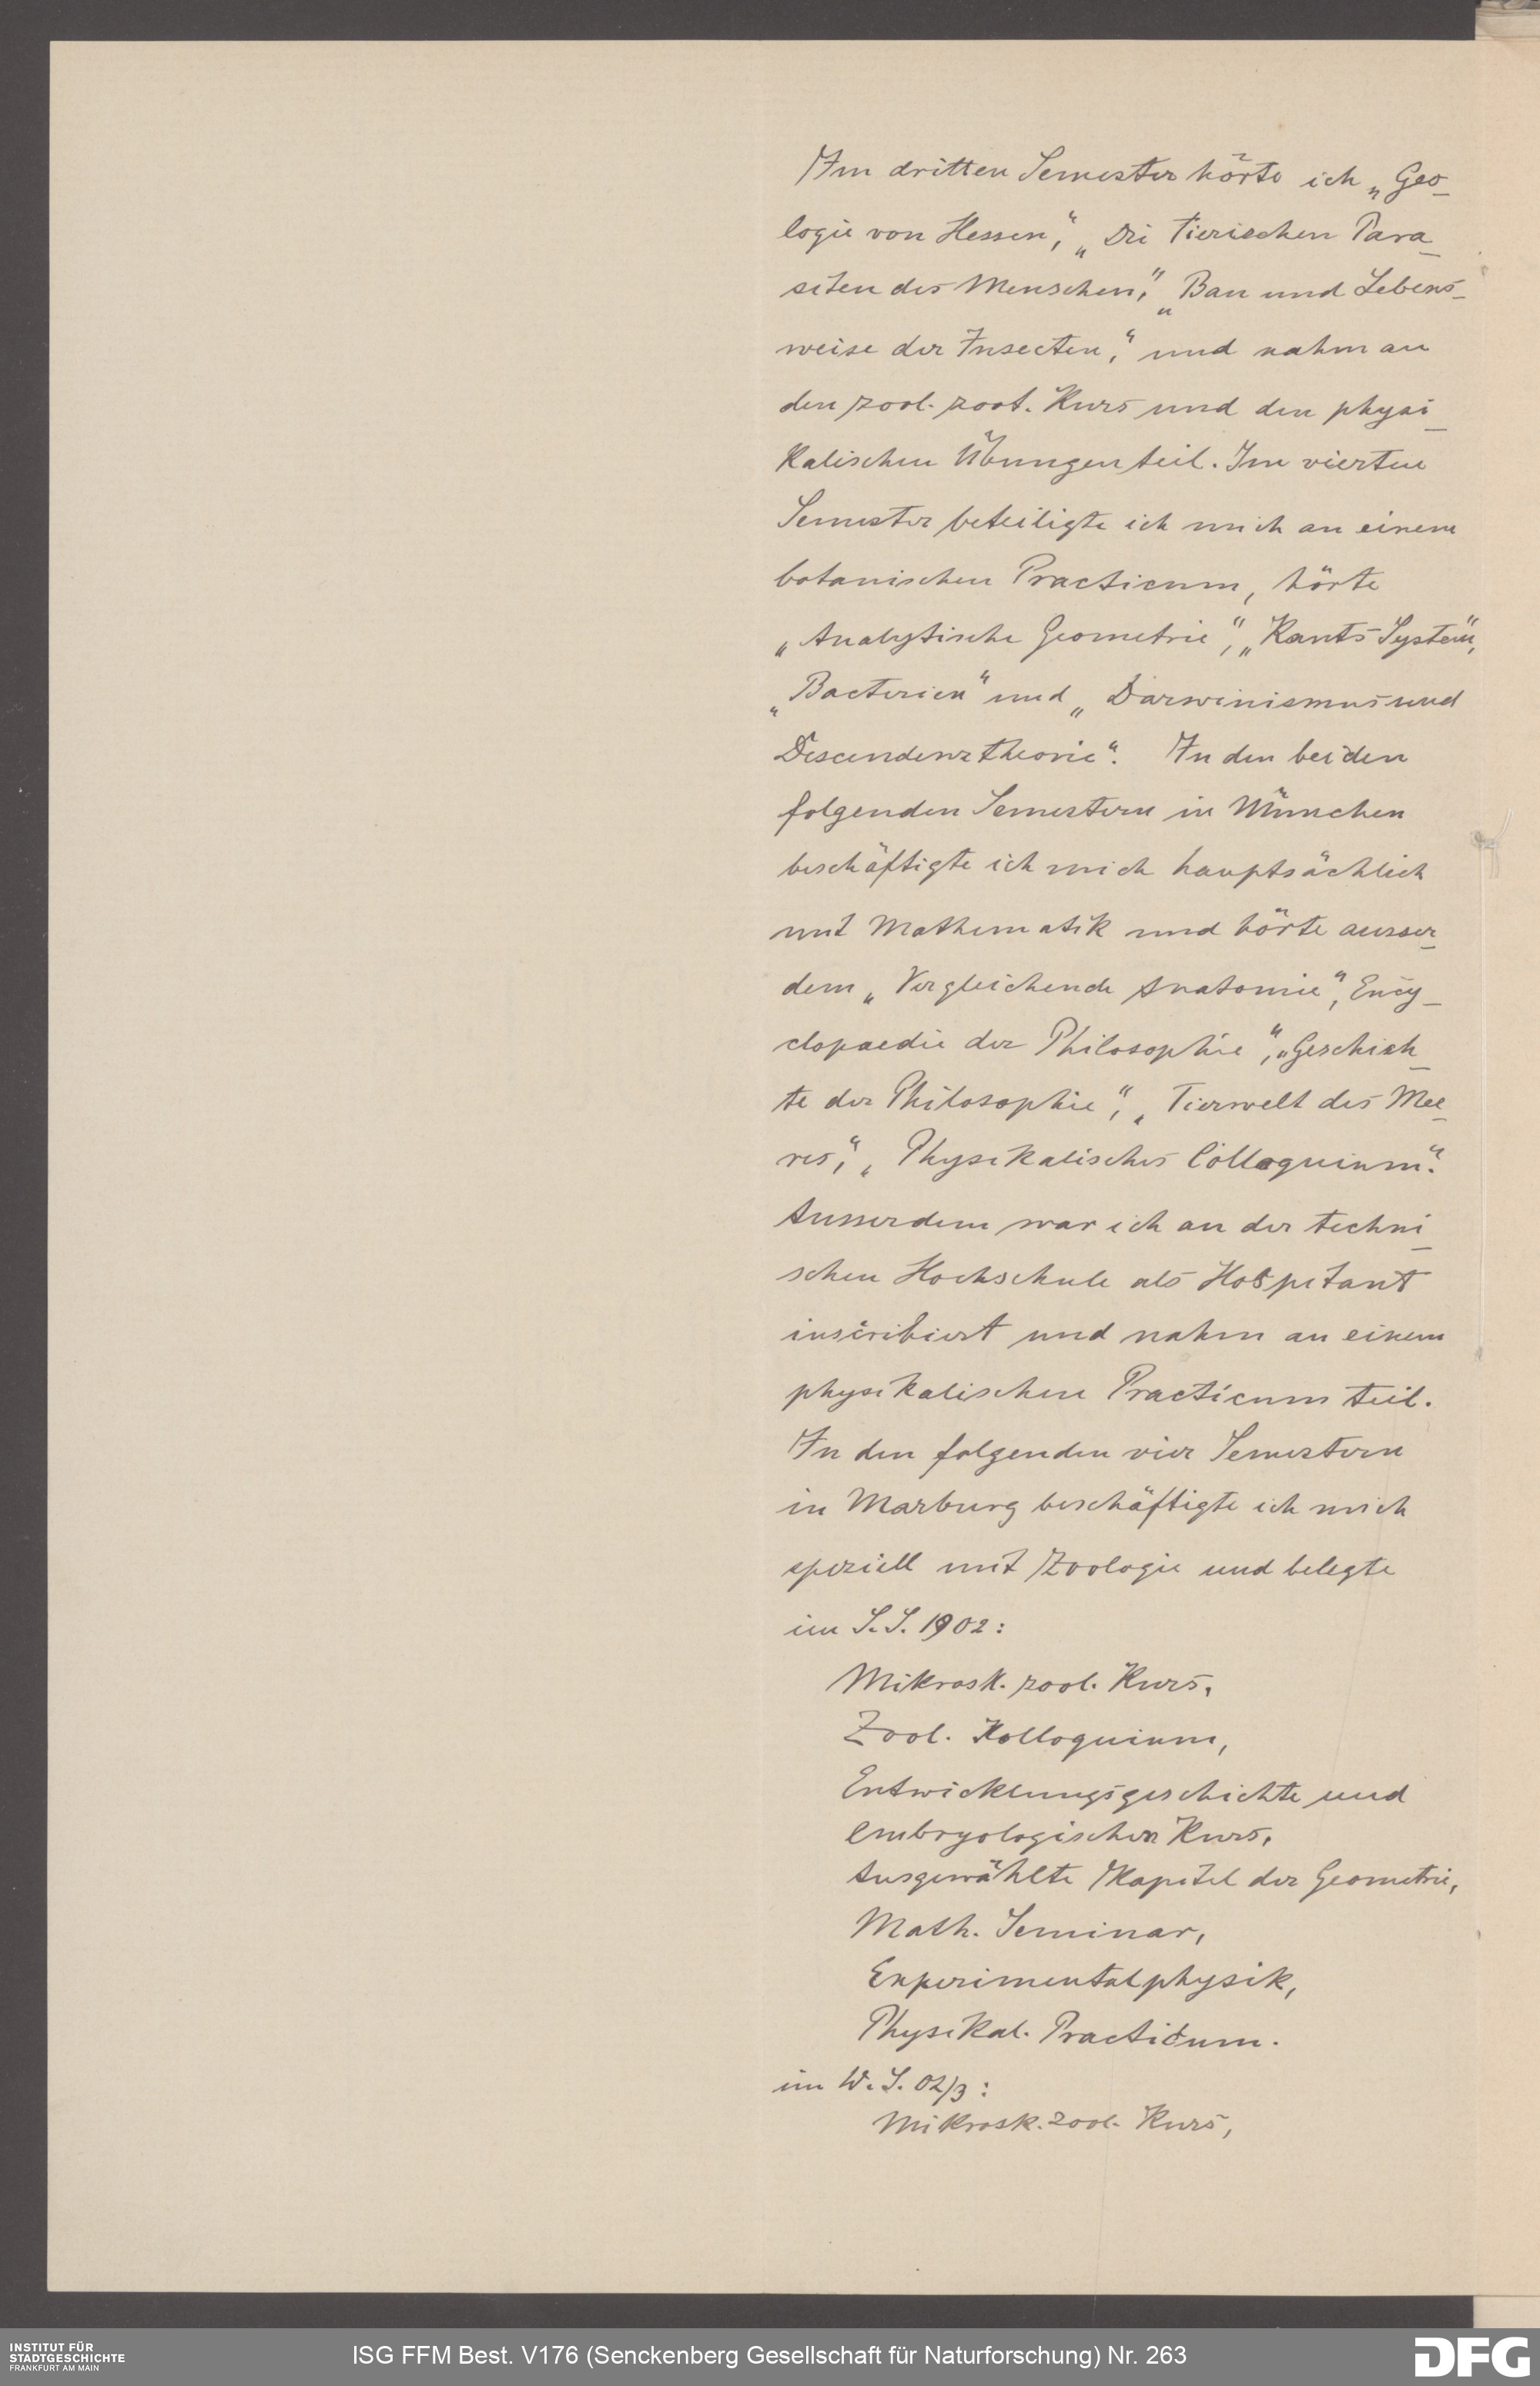 Im dritten Semester hörte ich „Geo-
logie von Hessen“, „Die tierischen Para-
siten des Menschen“, „Bau und Lebens-
weise der Insecten“, und nahm an
den zool. zoot. Kurs und den physi-
kalischen Übungen teil. Im vierten
Semester beteiligte ich mich an einem
botanischen Practicum, hörte
„Analytische Geometrie“, „Kants System“,
„Bacterien“ und „Darwinismus und
Descendenztheorie“. In den beiden
folgenden Semestern in München
beschäftigte ich mich hauptsächlich
mit Mathematik und hörte ausser-
dem „Vergleichende Anatomie“, Ency-
clopaedie der Philosophie“, „Geschich-
te der Philosophie“, „Tierwelt des Mee-
res“, „Physikalisches Colloquium“.
Ausserdem war ich an der techni-
schen Hochschule als Hospitant
inscribiert und nahm an einem
physikalischen Practicum teil.
In den folgenden vier Semestern
in Marburg beschäftigte ich mich
speziell mit Zoologie und belegte
im S.S. 1902:
Mikrosk. zool. Kurs,
Zool. Kolloquium,
Entwicklungsgeschichte und
embryologischen Kurs,
Ausgewählte Kapitel der Geometrie,
Math. Seminar,
Experimentalphysik,
Physikal. Practicum.
im W.S. 02/3:
Mikrosk. zool. Kurs,
INSTITUT FÜR
STADTGESCHICHTE
FRANKFURT AM MAIN
ISG FFM Best. V176 (Senckenberg Gesellschaft für Naturforschung) Nr. 263
DFG